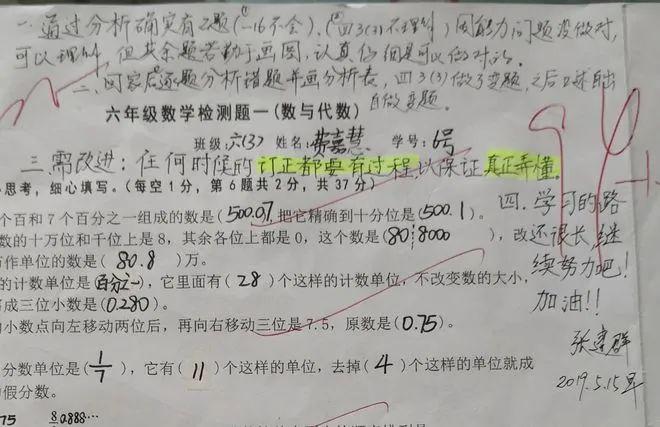 一.通过分析确实有2题(一16不会).(四3(3)不理解)因能力问题没做对,
可以理解,但其余题若勤于画图,认真仔细是可以做对的.
二.回家后逐题分析错题并画分析表,四3(3)做了变题,之后口述自出
自做变题.
六年级数学检测题一(数与代数)
班级:六(3) 姓名:费嘉慧 学号:6号
三.需改进:任何时候的订正都要有过程,以保证真正弄懂.
思考,细心填写。(每空1分,第6题共2分,共37分)
个百和7个百分之一组成的数是(500.07),把它精确到十分位是(500.1)。
数的十万位和千位上是8,其余各位上都是0,这个数是(808000),改
作单位的数是(80.8)万。
的计数单位是(百分之一),它里面有(28)个这样的计数单位,不改变数的大小,
成三位小数是(0.280)。
小数点向左移动两位后,再向右移动三位是7.5,原数是(0.75)。
四.学习的路
还很长,继
续努力吧!
加油!!
张建群
2019.5.15早
94
分数单位是(1/7),它有(11)个这样的单位,去掉(4)个这样的单位就成
假分数。
75 8 0.888…